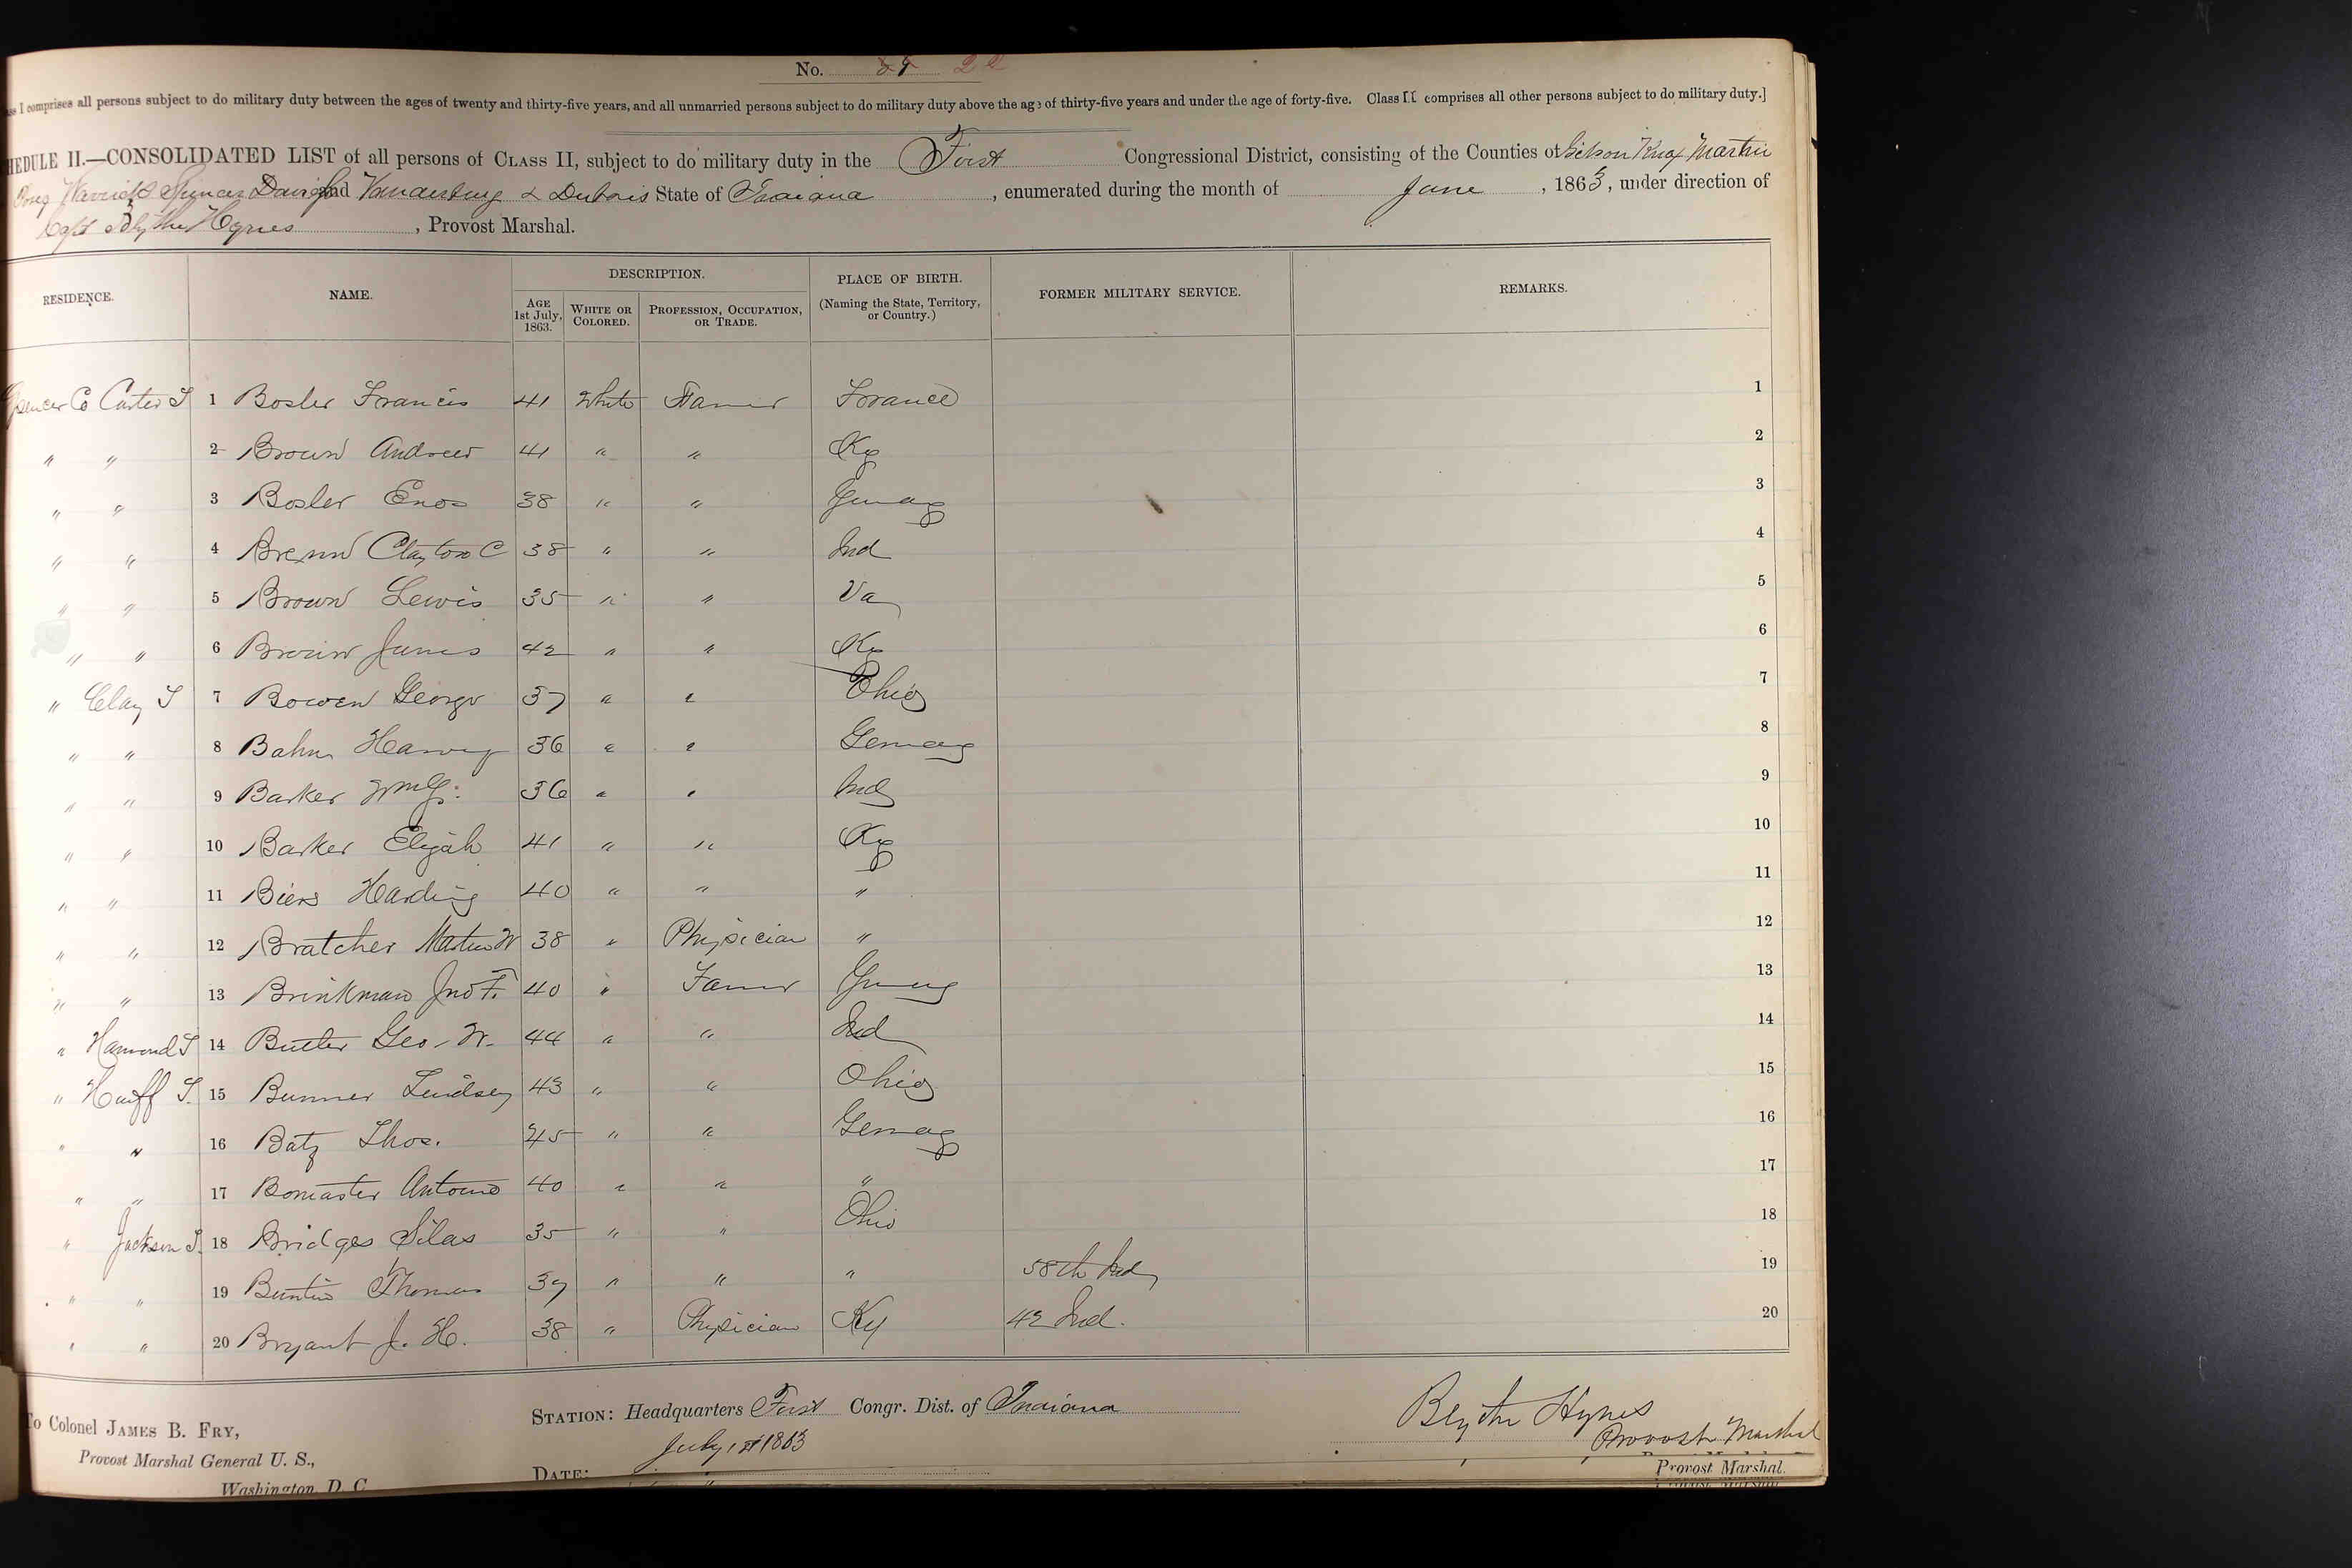 No. 89 22
ss I comprises all persons subject to do military duty between the ages of twenty and thirty-five years, and all unmarried persons subject to do military duty above the age of thirty-five years and under the age of forty-five. Class II comprises all other persons subject to do military duty.]
HEDULE II.—CONSOLIDATED LIST of all persons of CLASS II, subject to do military duty in the First Congressional District, consisting of the Counties of Gibson Knox Martin
Warrick Spencer Daviess and Vanderburg & Dubois State of Indiana, enumerated during the month of June, 1863, under direction of
Capt Blythe Hynes, Provost Marshal.
RESIDENCE. NAME. DESCRIPTION. PLACE OF BIRTH. FORMER MILITARY SERVICE. REMARKS.
AGE 1st July, 1863. WHITE OR COLORED. PROFESSION, OCCUPATION, OR TRADE. (Naming the State, Territory, or Country.)
Spencer Co Carter T 1 Bosler Francis 41 White Farmer France 1
" " 2 Brown Andrew 41 " " Ky 2
" " 3 Bosler Enos 38 " " Germany 3
" " 4 Brown Clayton C 38 " " Ind 4
" " 5 Brown Lewis 35 " " Va 5
" " 6 Brown James 42 " " Ky 6
" Clay T 7 Bowen George 37 " " Ohio 7
" " 8 Bahn Harvey 36 " " Germany 8
" " 9 Barker Wm G. 36 " " Ind 9
" " 10 Barker Elijah 41 " " Ky 10
" " 11 Biers Harding 40 " " " 11
" " 12 Bratcher Martin W 38 " Physician " 12
" " 13 Brinkman Jno F. 40 " Farmer Germany 13
" Hamond T 14 Butler Geo. W. 44 " " Ind 14
" Huff T. 15 Bunner Lindsey 43 " " Ohio 15
" " 16 Batz Thos. 45 " " Germany 16
" " 17 Bomaster Antoine 40 " " " 17
" Jackson T. 18 Bridges Silas 35 " " Ohio 18
" " 19 Buntin Thomas 37 " " " 58th Ind 19
" " 20 Bryant J. H. 38 " Physician Ky 42 Ind. 20
To Colonel JAMES B. FRY,
Provost Marshal General U. S.,
Washington, D. C
STATION: Headquarters First Congr. Dist. of Indiana
DATE: July 1st 1863
Blythe Hynes
Provost Marshal
Provost Marshal.